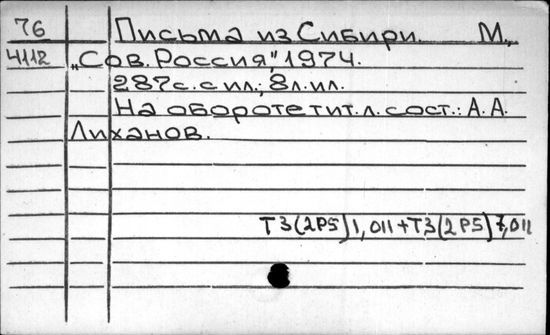 76 Письма из Сибири. М.,
4112 „Сов. Россия", 1974.
287с. с ил.; 8л. ил.
На обороте тит. л. сост.: А. А.
Лиханов.
Т3(2Р5)1,011+Т3(2Р5)7,011